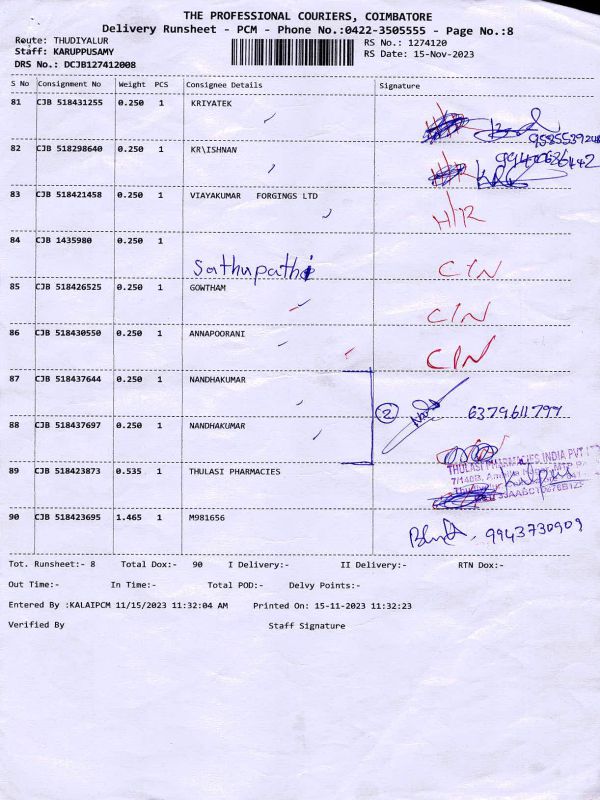 THE PROFESSIONAL COURIERS, COIMBATORE
Delivery Runsheet - PCM - Phone No.:0422-3505555 - Page No.:8
Route: THUDIYALUR
RS No.: 1274120
Staff: KARUPPUSAMY
RS Date: 15-Nov-2023
DRS No.: DCJB127412008
S No Consignment No Weight PCS Consignee Details Signature
81 CJB 518431255 0.250 1 KRIYATEK
82 CJB 518298640 0.250 1 KR\ISHNAN
83 CJB 518421458 0.250 1 VIAYAKUMAR FORGINGS LTD H/R
84 CJB 1435980 0.250 1
Sathupathi C/N
85 CJB 518426525 0.250 1 GOWTHAM C/N
86 CJB 518430550 0.250 1 ANNAPOORANI C/N
87 CJB 518437644 0.250 1 NANDHAKUMAR
2 6379611797
88 CJB 518437697 0.250 1 NANDHAKUMAR
89 CJB 518423873 0.535 1 THULASI PHARMACIES
THULASI PHARMACIES INDIA PVT
90 CJB 518423695 1.465 1 M981656
9943730909
Tot. Runsheet:- 8 Total Dox:- 90 I Delivery:- II Delivery:- RTN Dox:-
Out Time:- In Time:- Total POD:- Delvy Points:-
Entered By :KALAIPCM 11/15/2023 11:32:04 AM Printed On: 15-11-2023 11:32:23
Verified By Staff Signature